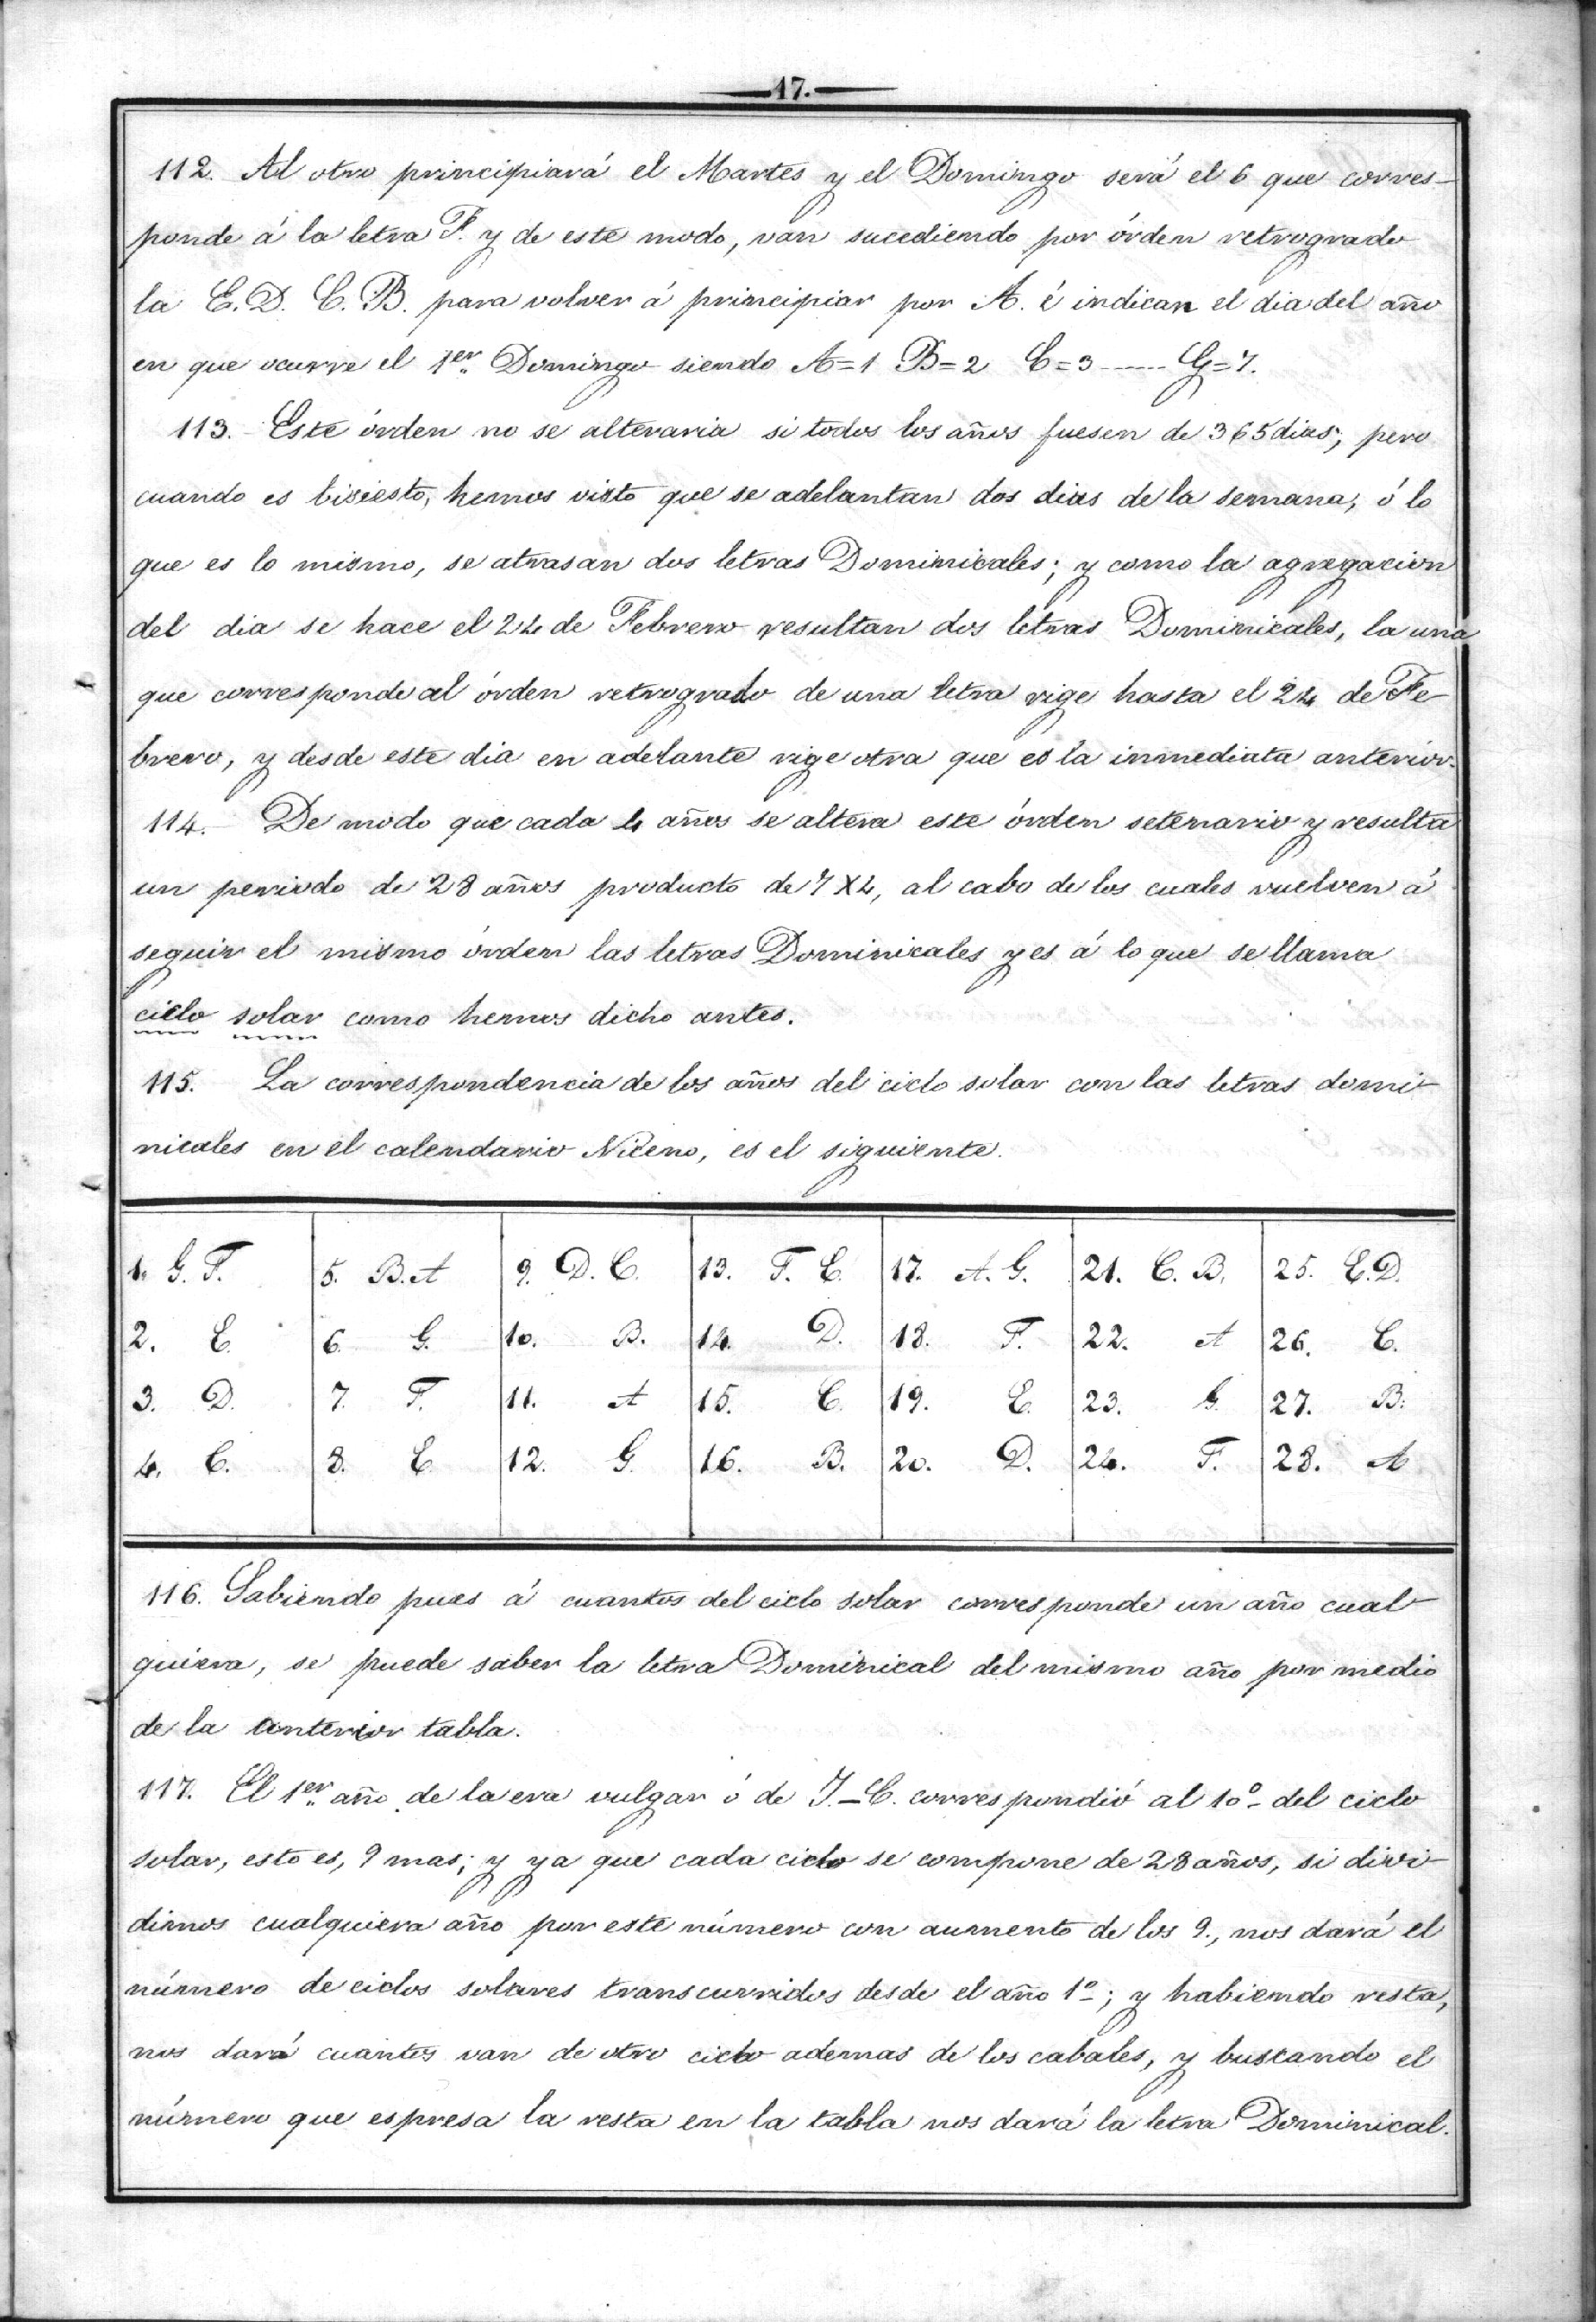 17.
112. Al otro principiará el Martes y el Domingo será el 6 que corres-
ponde á la letra F. y de este modo, van sucediendo por órden retrogrado
la E. D. C. B. para volver á principiar por A. é indican el dia del año
en que ocurre el 1er. Domingo siendo A=1 B=2 C=3 ------ G=7.
113. Este órden no se alteraria si todos los años fuesen de 365 dias; pero
cuando es bisiesto, hemos visto que se adelantan dos dias de la semana, ó lo
que es lo mismo, se atrasan dos letras Dominicales; y como la agregacion
del dia se hace el 24 de Febrero resultan dos letras Dominicales, la una
que corresponde al órden retrogrado de una letra rige hasta el 24 de Fe-
brero, y desde este dia en adelante rige otra que es la inmediata anterior.
114. De modo que cada 4 años se altera este órden setenario y resulta
un periodo de 28 años producto de 7 X 4, al cabo de los cuales vuelven á
seguir el mismo órden las letras Dominicales y es á lo que se llama
ciclo solar como hemos dicho antes.
115. La correspondencia de los años del ciclo solar con las letras domi-
nicales en el calendario Niceno, es el siguiente.
1. G. F. 5. B. A 9. D. C. 13. F. E. 17. A. G. 21. C. B. 25. E. D.
2. E. 6. G. 10. B. 14. D. 18. F. 22. A 26. C.
3. D. 7. F. 11. A 15. C. 19. E. 23. G. 27. B.
4. C. 8. E. 12. G. 16. B. 20. D. 24. F. 28. A
116. Sabiendo pues á cuantos del ciclo solar corresponde un año cual-
quiera, se puede saber la letra Dominical del mismo año por medio
de la anterior tabla.
117. El 1er. año de la era vulgar ó de J.-C. correspondió al 10º del ciclo
solar, esto es, 9 mas; y ya que cada ciclo se compone de 28 años, si divi-
dimos cualquiera año por este número con aumento de los 9., nos dará el
número de ciclos solares transcurridos desde el año 1º; y habiendo resta,
nos dará cuantos van de otro ciclo ademas de los cabales, y buscando el
número que espresa la resta en la tabla nos dará la letra Dominical.